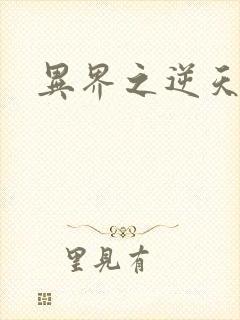 異界之逆天
里見有